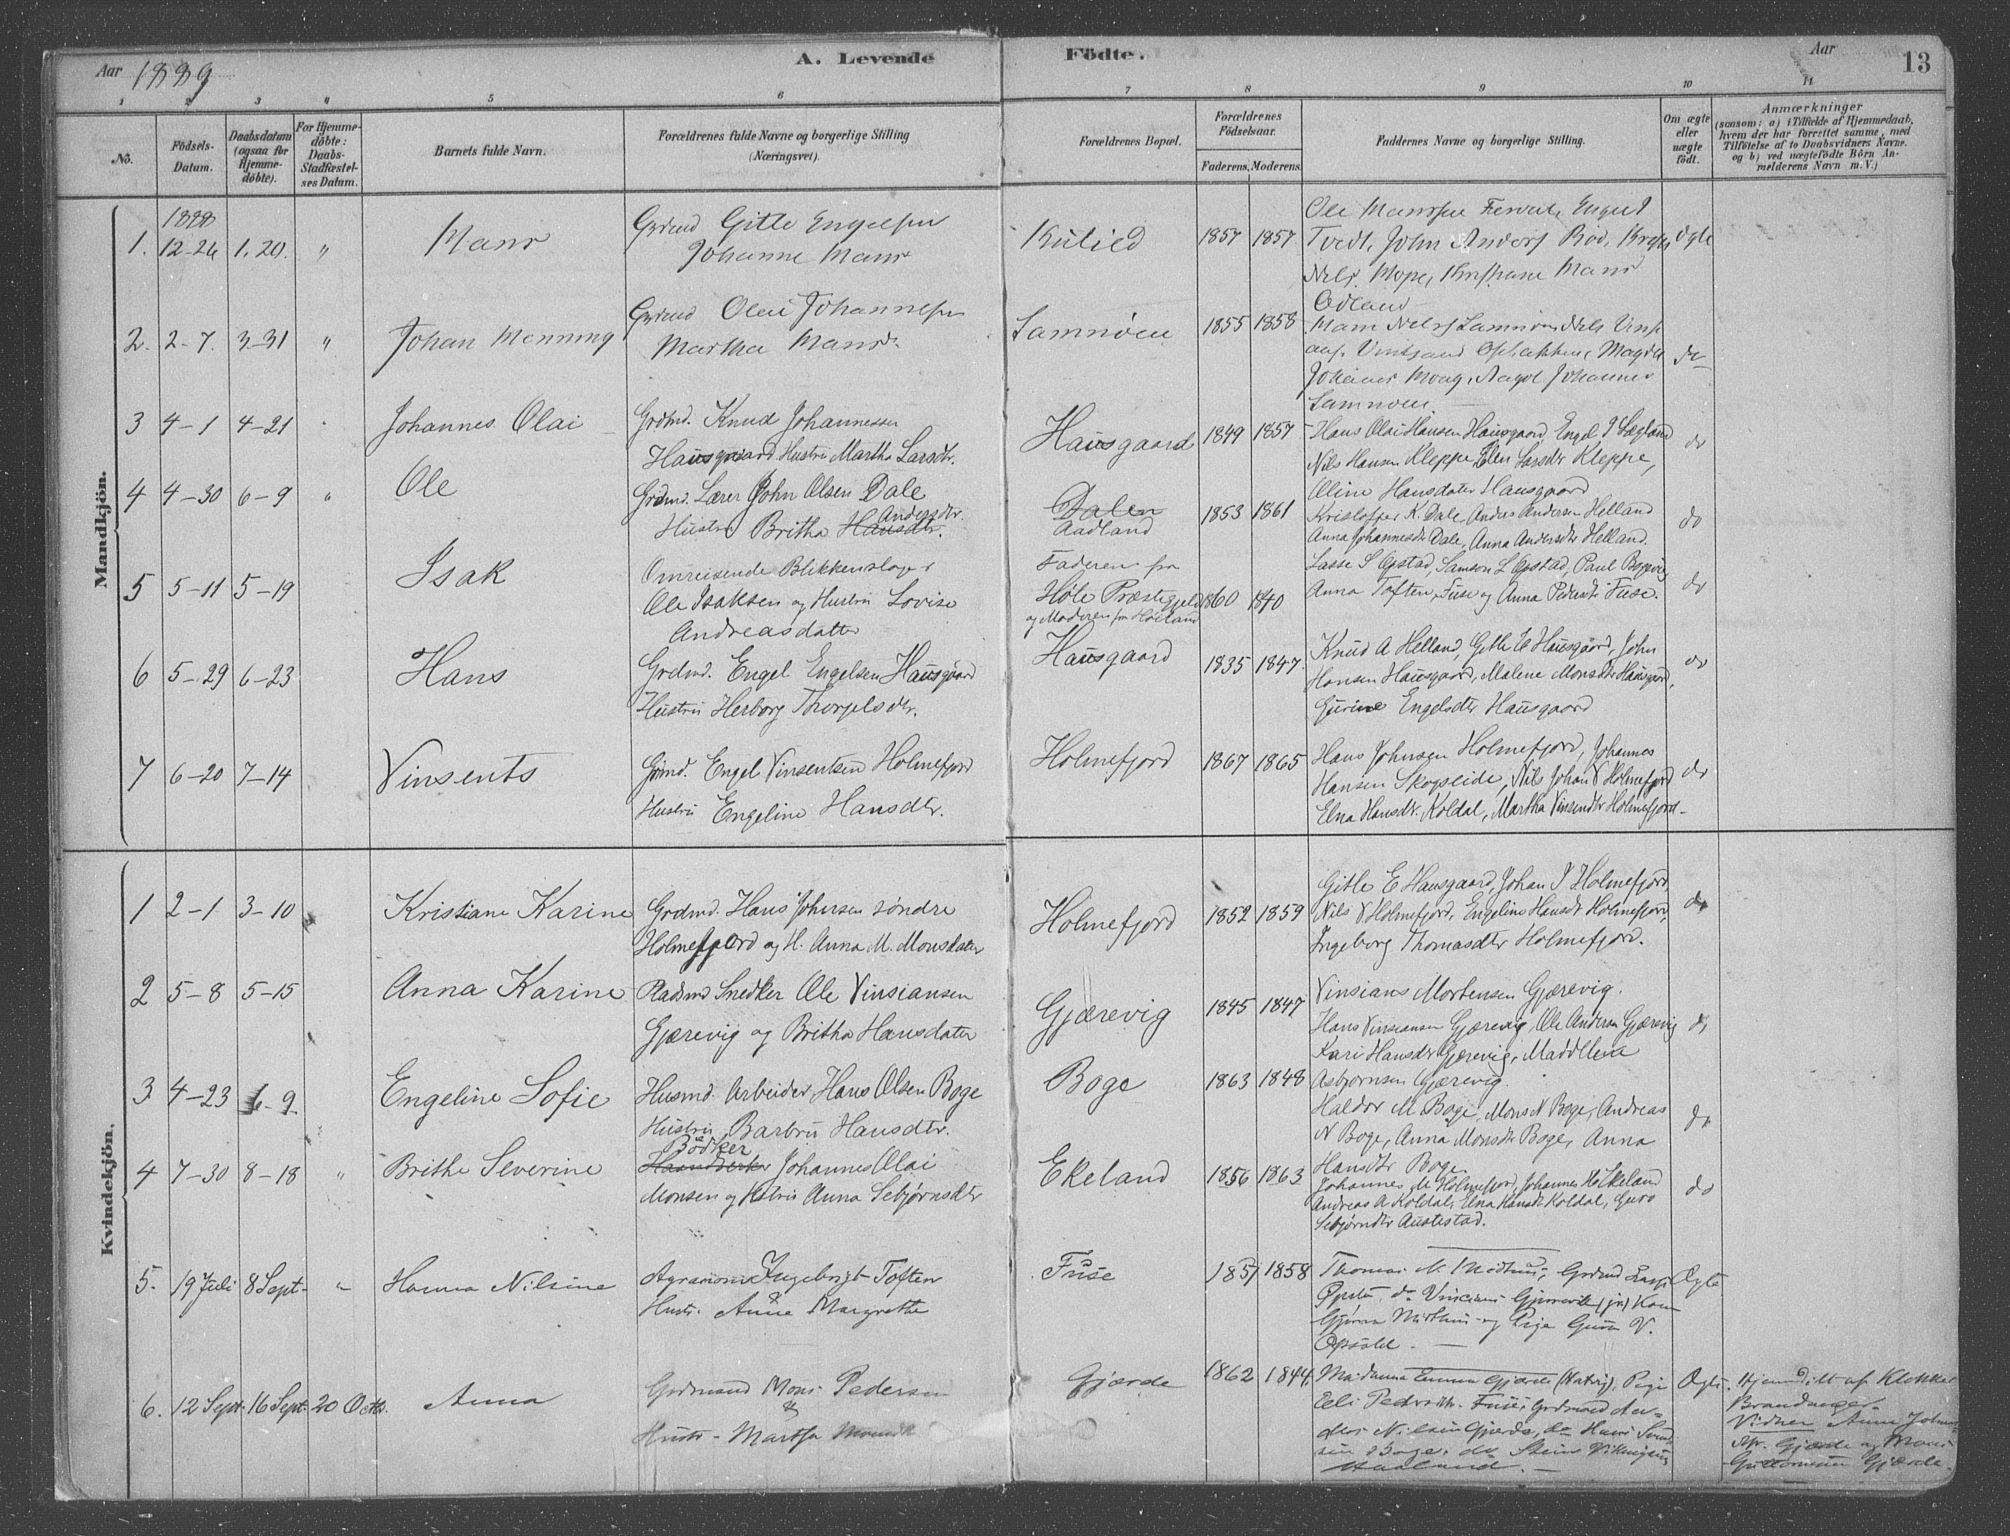 Aar 1889
A. Levende
Födte.
Aar
13
1 2 3 4 5 6 7 8 9 10 11
No.
Födsels-
Datum.
Daabsdatum
(ogsaa for
Hjemme-
döbte).
For Hjemme-
döbte:
Daabs-
Stadfestel-
ses Datum.
Barnets fulde Navn.
Forældrenes fulde Navne og borgerlige Stilling
(Næringsvei).
Forældrenes Bopæl.
Forældrenes
Födselsaar.
Faderens. Moderens.
Faddernes Navne og borgerlige Stilling.
Om ægte
eller
uægte
födt.
Anmærkninger
(saasom: a) i Tilfælde af Hjemmedaab,
hvem der har forrettet samme, med
Tilföielse af to Daabsvidners Navne.
og b) ved uægtefödte Börn An-
melderens Navn m. V.)
Mandkjön.
1. 1888 12-26 1. 20. " Mans
Grdmd Gitle Engelsen
Johanne Mansd
Kulied 1857 1857
Ole Mansen
Tvedt, John Anders Röd,
Nils
Odland
Ægte
2. 2-7. 3-31 " Johan Menning
Grdmd Olai Johannesen
Martha Mansd.
Samnöen 1855 1858
Mam Nels Samnöen Nils
Magda
Johannes
Samnöen
do
3 4-1 4-21 Johannes Olai
Grdmd. Knud Johannessen
Hausgaard Hustru Martha Larsdtr.
Hausgaard 1849 1857
Hans Olai Hansen Hausgaard, Engel J Lægland
Nils Hansen Kleppe, Elen Larsdtr Kleppe,
Oline Hansdater Hausgaard
do
4 4-30 6-9 " Ole
Grdmd. Lærer John Olsen Dale
Hustru Britha Hansdtr. Andersdtr.
Dalen
Aadland
1853 1861
Kristoffer K. Dale, Anders Andersen Helland
Anna Johannesdtr Dale, Anna Andersdtr Helland.
do
5 5-11 5-19 Isak
Omreisende Blikkenslager
Ole Isaksen og Hustru Lovise
Andreasdatter
Faderen fra
Höle Præstegjeld
og Moderen fra Höiland
1860 1840
Lasse S Opstad, Samson L Opstad, Paul
Anna Toften, Fuse og Anna Pedersdtr Fuse.
do
6 5-29 6-23 Hans
Grdmd. Engel Engelsen Hausgaard
Hustru Herborg Thorgelsdtr.
Hausgaard 1835 1847.
Knud A Helland, Gitle E Hausgaard, John
Hansen Hausgaard, Malene Monsdtr Hausgaard,
Gurine Engelsdtr Hausgaard
do
7 6-20 7-14 Vinsents
Grdmd. Engel Vinsentsen Holmefjord
Hustru Engeline Hansdtr.
Holmefjord 1867 1865
Hans Johnsen Holmefjord, Johannes
Hansen Skogseide, Nils Johan V Holmefjord
Elna Hansdtr. Koldal, Martha Vinsendtr Holmefjord
do
Kvindekjön.
1 2-1 3-10 Kristiane Karine
Grdmd. Hans Johnsen söndre
Holmefjord og H. Anna M. Monsdater
Holmefjord 1852 1859
Gitle E Hausgaard, Johan J Holmefjord,
Nils V Holmefjord, Engeline Hansdtr Holmefjord,
Ingeborg Thomasdtr Holmefjord.
do
2 5-8 5-15 Anna Karine
Pladsmd Snedker Ole Vinsiansen
Gjærevig og Britha Hansdater
Gjærevig 1845 1847
Vinsians Mortensen Gjærevig.
Hans Vinsiansen Gjærevig, Ole Andersen Gjærevig
Kari Hansdtr Gjærevig, Maddlene
Asbjørnsen Gjærevig.
do
3 4-23 6-9 Engeline Sofie
Husmd. Arbeider Hans Olsen Boge
Hustru Barbru Hansdtr.
Boge 1863 1848
Haldor M Boge, Mons N Boge, Andreas
N Boge, Anna Monsdtr Boge, Anna
Hansdtr Boge
do
4 7-30 8-18 " Brithe Severine
Bödker
Haandverker Johannes Olai
Monsen og Hustru Anna Sebjørnsdtr
Ekeland 1856 1863
Johannes M Holmefjord, Johannes H Ekeland
Andreas A Koldal, Elna Hansdtr Koldal, Guro
Sebjørndtr Austestad.
do
5. 19 Juli 8 Sept. " Hanna Nilsine
Agronom Ingebrigt Toften
&
Hustr. Anne Margrethe
Fuse 1851 1858
Thomas M. Midthus, Grdmd Lasse
Opstd. do Vinsians Gjærevik (jr) Kone
Gjøron Midthus og Pige Guro V.
Opsald.
Ægte
6. 12 Sept. 16 Sept. 20 Octb. Anna
Grdmand Mons Pedersen
&
Hustr. Martha
Gjærde 1862 1844,
Madame Emma Gjærde (Hatvig), Pige
Eli Pedersdtr. Fuse, Grdmand An-
ders Nilsen Gjærde, do Hans
Boge, do Steins Vikingsen
Haaland.
Ægte.
Hjemdöbt af Klokker
Brandanger.
Vidner Anna
Gjærde og Mons
Guttormsen Gjærde.